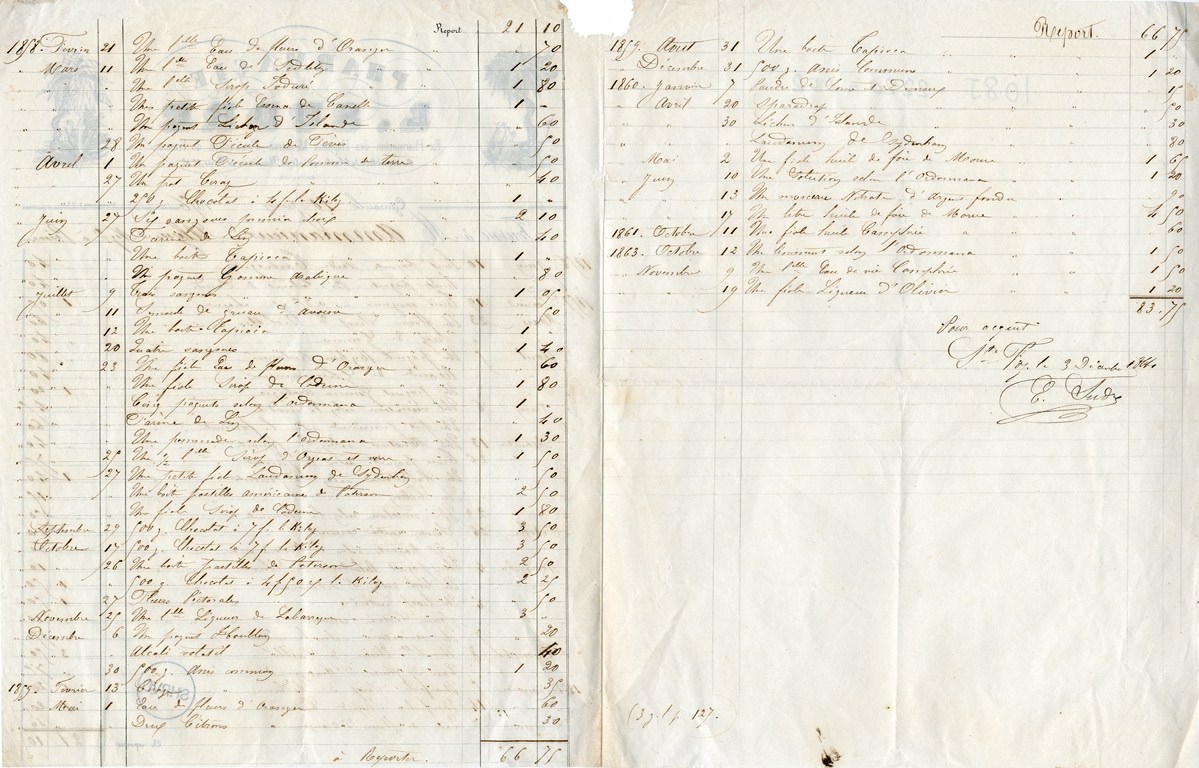 Report 21 10
1858. Février 21 Une b^lle Eau de fleurs d'Oranger " 70
" Mars 11 Une b^lle Eau de Sedlitz 1 20
" " " Une b^lle Sirop Iodure 1 80
" " " Un petit fiole Essence de Canelle 1 "
" " " Un paquet Lichen d'Islande " 60
" " 28 Un paquet Fécule de Fèves " 50
" Avril 1 Un paquet Fécule de pomme de terre " 50
" " 27 Un pot Cerat " 40
" " " 250 g. Chocolat à 4f. le Kilog 1 "
" Juin 27 Six sangsues 2 10
" " " Farine de Lin " 40
" " " Une boite Tapioca 1 "
" " " Un paquet Gomme arabique " 80
" Juillet 9 Trois sangsues 1 05
" " 11 Semoule de gruau d'avoine " 50
" " 12 Une boite Tapioca 1 "
" " 20 Quatre sangsues 1 40
" " 23 Une fiole Eau de fleurs d'Oranger " 60
" " " Une fiole Sirop de Codeine 1 80
" " " Cinq paquets selon l'ordonnance 1 "
" " " Farine de Lin " 40
" " " Une pommade selon l'ordonnance 1 30
" " 25 Une 1/2 b^lle Sirop d'Orgeat et verre 1 50
" " 27 Un petit fiole Laudanum de Sydenham " 50
" " " Une boite pastilles américaine de Paterson 2 50
" " " Une fiole Sirop de Codeine 1 80
" Septembre 29 500 g. Chocolat à 7 f. le Kilog 3 50
" Octobre 17 500 g. Chocolat à 7 f. le Kilog 3 50
" " 26 Une boite pastille de Paterson 2 50
" " " 500 g. Chocolat à 4f50 le Kilog 2 25
" " 27 Fleurs Pectorales " 50
" Novembre 25 Une b^lle Liqueur de Labarraque 3 "
" Décembre 6 Un paquet " 20
" " " Alcali volatil " 40
" " 30 500 g. Anis commun 1 20
1859. Février 13 " 35
" Mai 1 Eau de fleurs d'Oranger " 60
" " " Deux Citrons " 30
à Reporter. 66 75
Report. 66 75
1859. Aout 31 Une boite Tapioca 1 "
" Décembre 31 500 g. Anis Commun 1 20
1860. Janvier 7 Poudre de
" Avril 20 Sparadrap
" " 30 Lichen d'Islande " 30
Laudanum de Sydenham " 80
" Mai 2 Une fiole huile de foie de Morue 1 65
" Juin 10 Une Solution selon l'Ordonnance 1 20
" " 13 Un morceau Nitrate d'argent fondu
" " 17 Un litre huile de foie de Morue 4 50
1861. Octobre 11 Une fiole huile Camphrée " 60
1863. Octobre 12 Un liniment selon l'Ordonnance 1 50
" Novembre 9 Une b^lle Eau de vie Camphrée 1 50
" " 19 Une fiole Liqueur d'Olivier 1 20
83. 75
Pour acquit
S^te Foy, le 3 Décembre 1864
E. Sudre